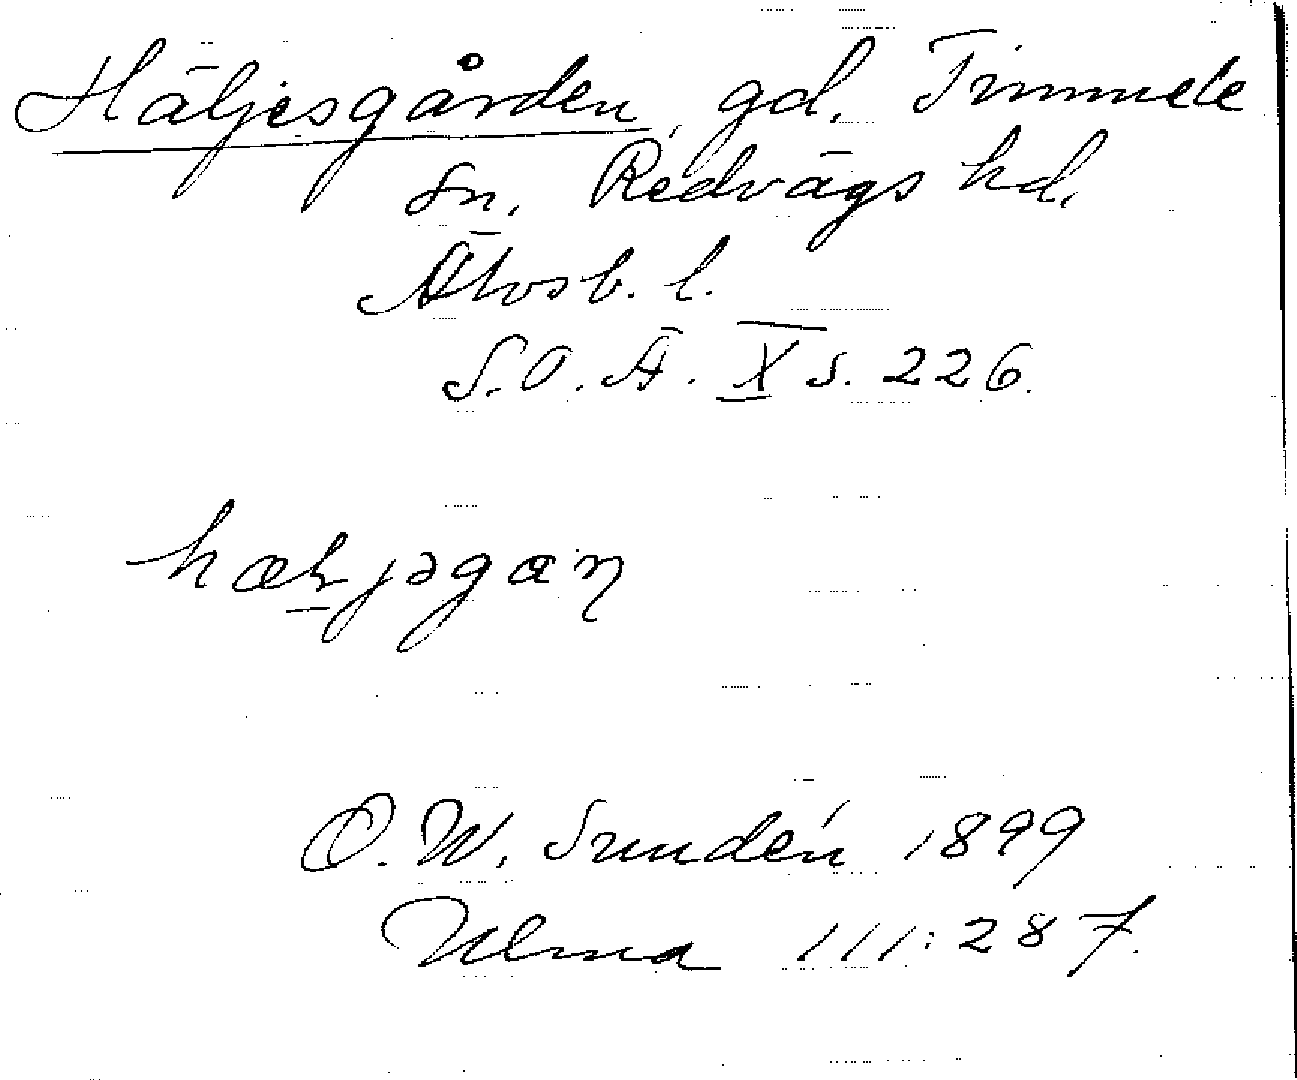 Häljesgården gd. Timmele
sn. Redvägs hd.
Älvsb. l.
S.O.Ä. X s. 226.
hæljəgaɳ
O. W. Sundén 1899
Ulma 111:287.